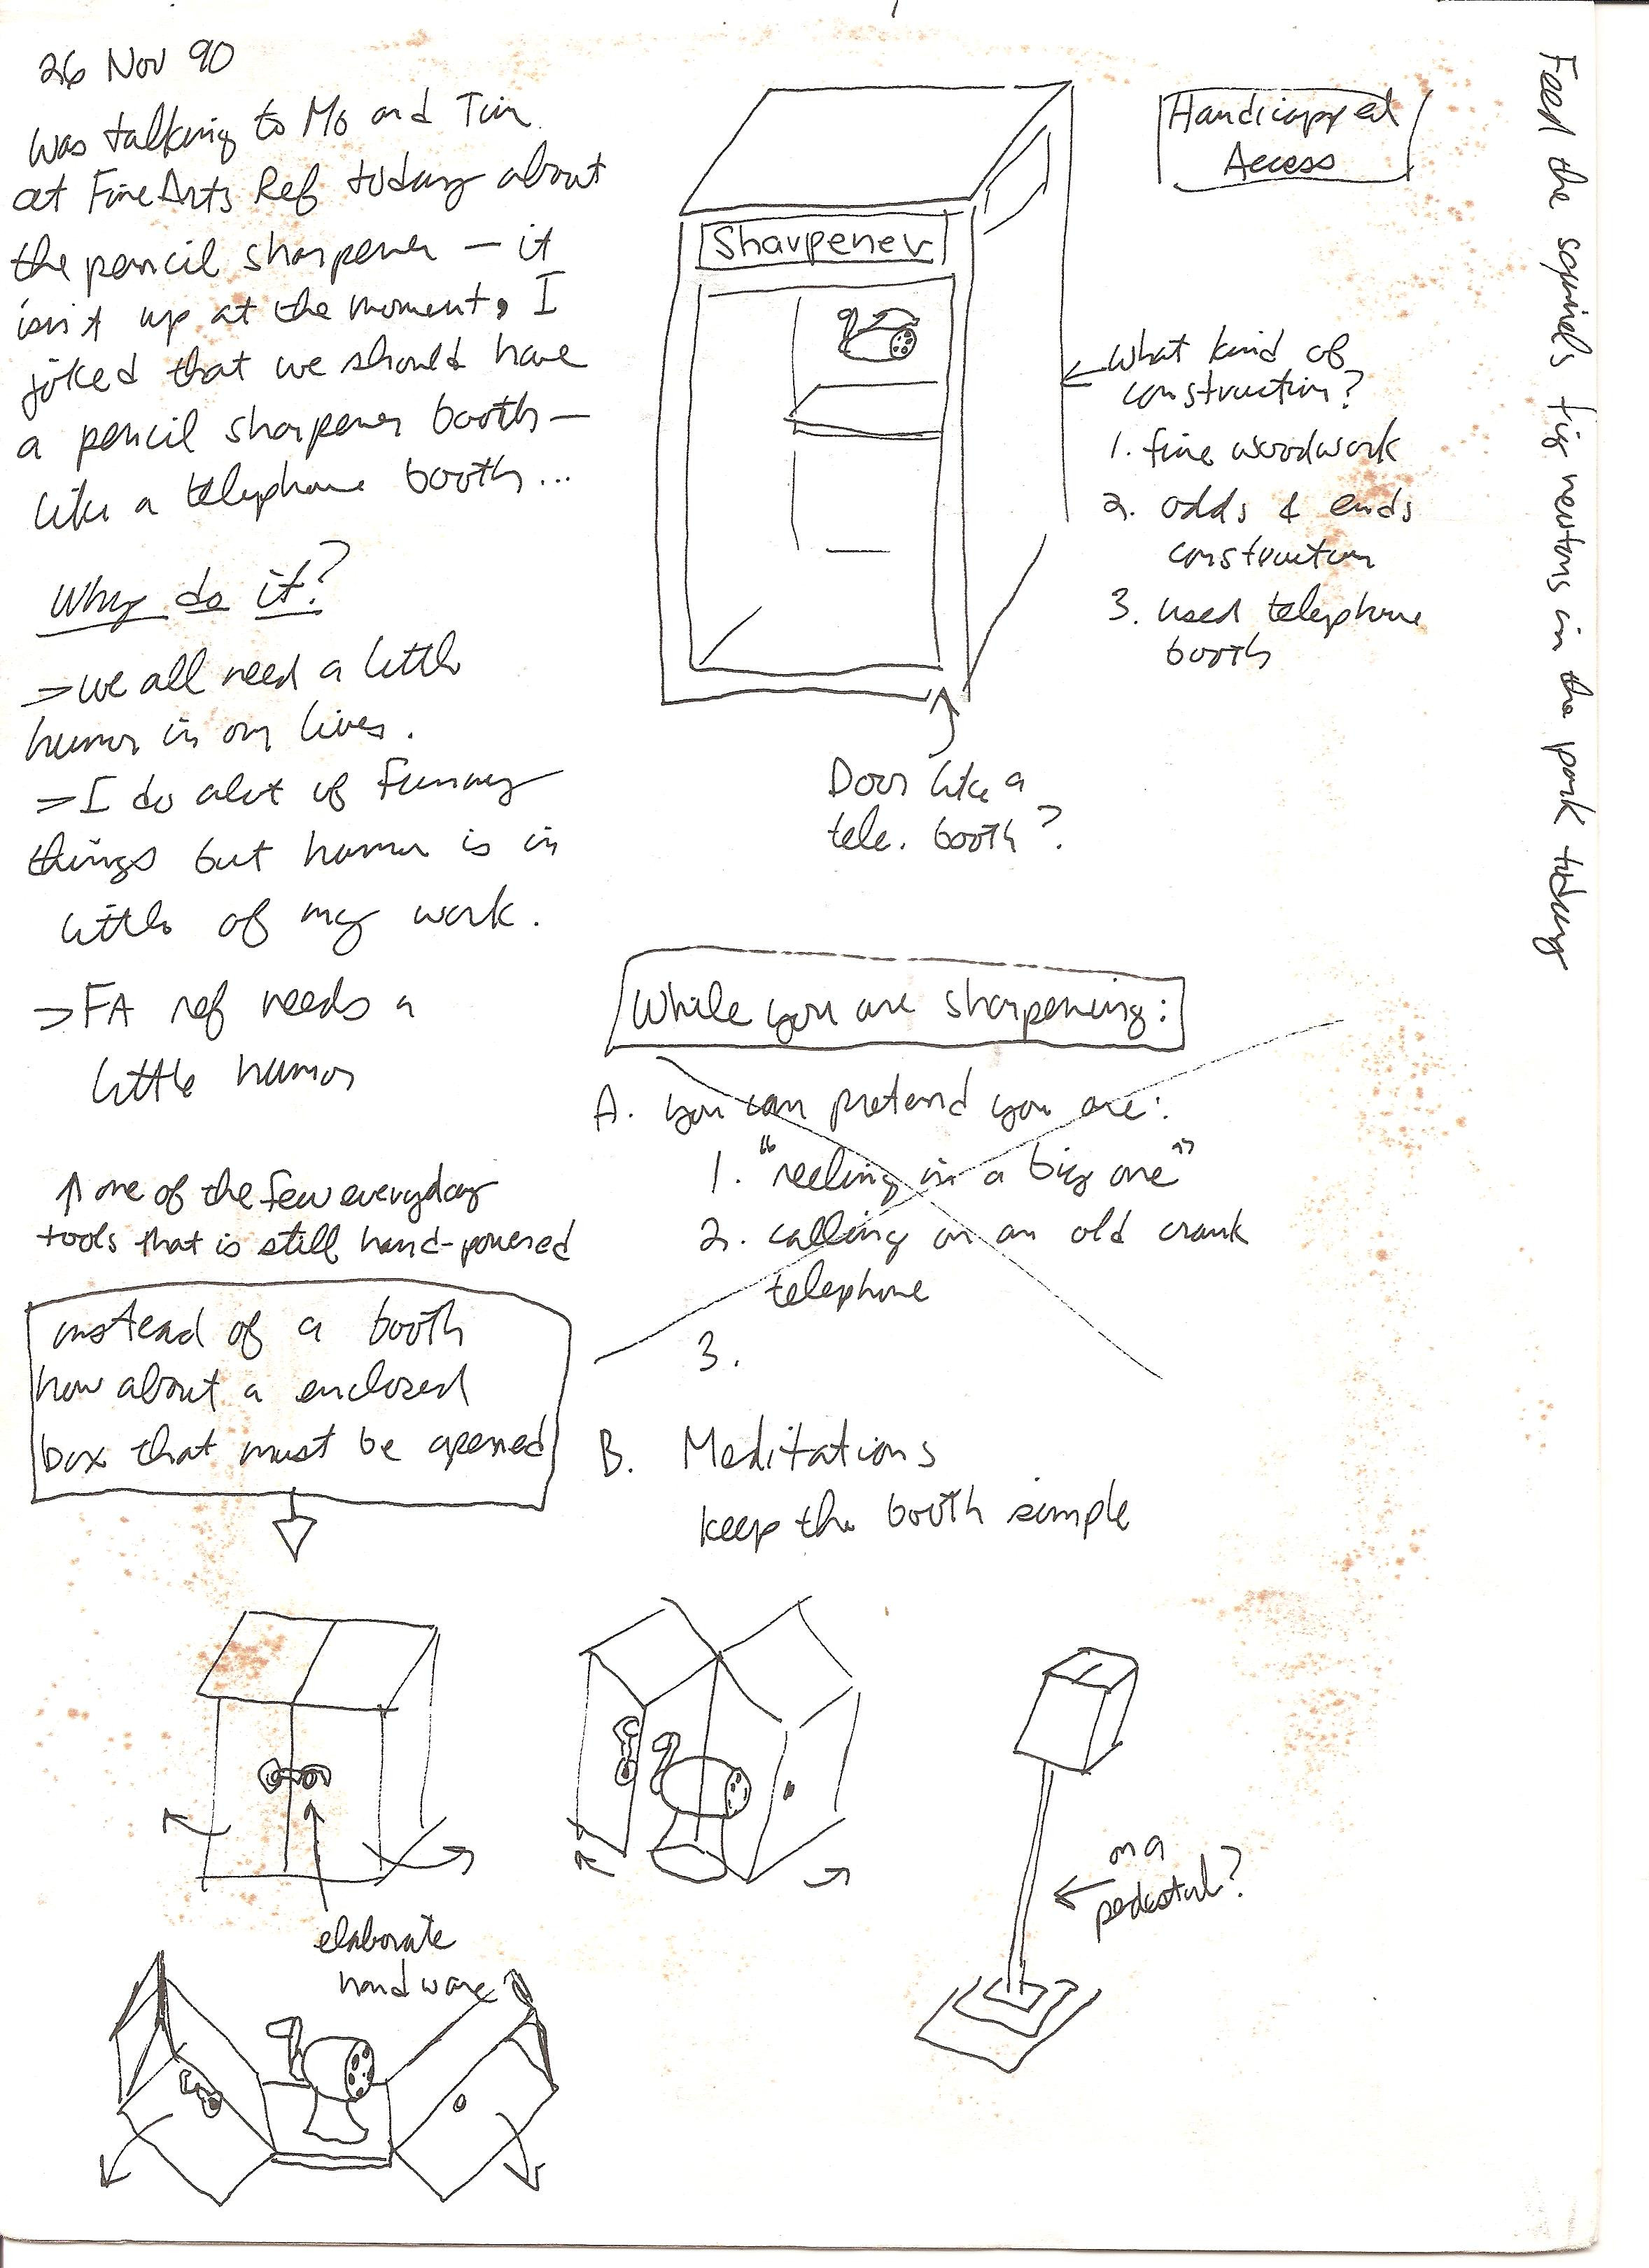 26 Nov 90
was talking to Mo and Tim
at Fine Arts Ref today about
the pencil sharpener — it
isn't up at the moment, I
joked that we should have
a pencil sharpener booth —
like a telephone booth...
Why do it?
→ we all need a little
humor in our lives.
→ I do alot of funny
things but humor is in
little of my work.
→ FA ref needs a
little humor
↑ one of the few everyday
tools that is still hand-powered
instead of a booth
how about a enclosed
box that must be opened
Sharpener
Handicapped
Access
← What kind of
construction?
1. fine woodwork
2. odds & ends
construction
3. used telephone
booth
Door like a
tele. booth?
While you are sharpening:
A. you can pretend you are:
1. "reeling in a big one"
2. calling on an old crank
telephone
3.
B. Meditations
keep the booth simple
elaborate
hardware
← on a
pedestal?
Feed the squirrels fig newtons in the park today